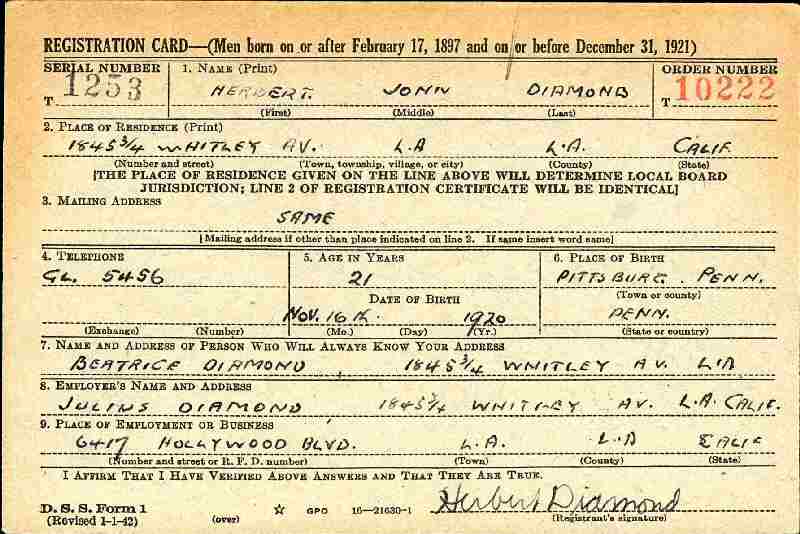 REGISTRATION CARD—(Men born on or after February 17, 1897 and on or before December 31, 1921)
SERIAL NUMBER 1. NAME (Print) ORDER NUMBER
T 1253 HERBERT JOHN DIAMOND T 10222
(First) (Middle) (Last)
2. PLACE OF RESIDENCE (Print)
1845 3/4 WHITLEY AV. L.A L.A. CALIF
(Number and street) (Town, township, village, or city) (County) (State)
[THE PLACE OF RESIDENCE GIVEN ON THE LINE ABOVE WILL DETERMINE LOCAL BOARD
JURISDICTION; LINE 2 OF REGISTRATION CERTIFICATE WILL BE IDENTICAL]
3. MAILING ADDRESS
SAME
[Mailing address if other than place indicated on line 2. If same insert word same]
4. TELEPHONE 5. AGE IN YEARS 6. PLACE OF BIRTH
GL. 5456 21 PITTSBURG. PENN.
DATE OF BIRTH (Town or county)
NOV. 16 th 1920 PENN.
(Exchange) (Number) (Mo.) (Day) (Yr.) (State or country)
7. NAME AND ADDRESS OF PERSON WHO WILL ALWAYS KNOW YOUR ADDRESS
BEATRICE DIAMOND, 1845 3/4 WHITLEY AV. L.A
8. EMPLOYER'S NAME AND ADDRESS
JULIUS DIAMOND 1845 3/4 WHITLEY AV. L.A. CALIF.
9. PLACE OF EMPLOYMENT OR BUSINESS
6417 HOLLYWOOD BLVD. L.A. L.A CALIF
(Number and street or R. F. D. number) (Town) (County) (State)
I AFFIRM THAT I HAVE VERIFIED ABOVE ANSWERS AND THAT THEY ARE TRUE.
D. S. S. Form 1
(Revised 1-1-42) (over) ☆ GPO 16—21630-1 Herbert Diamond
(Registrant's signature)